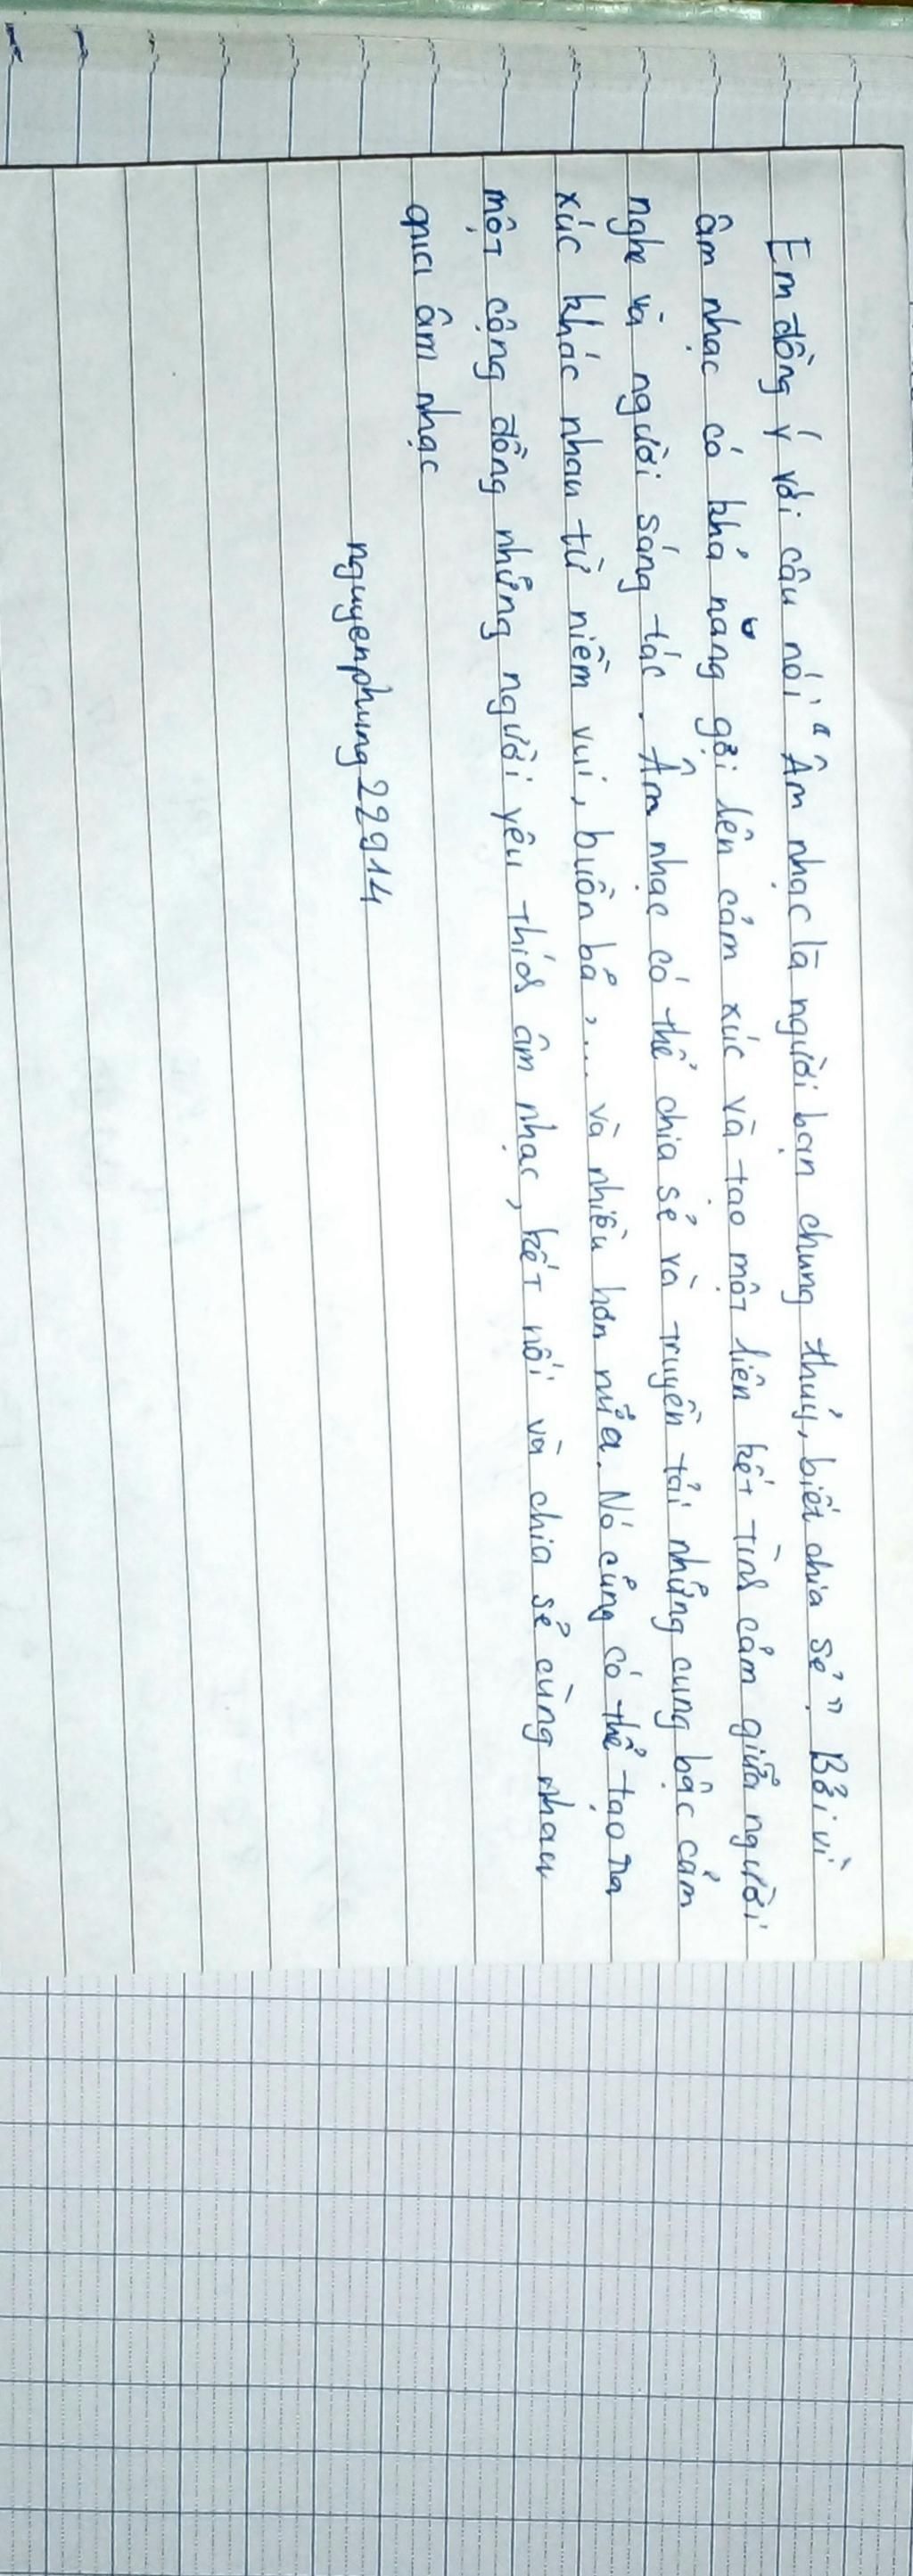 Em đồng ý với câu nói "Âm nhạc là người bạn chung thuỷ, biết chia sẻ". Bởi vì
âm nhạc có khả năng gợi lên cảm xúc và tạo một liên kết tình cảm giữa người
nghe và người sáng tác. Âm nhạc có thể chia sẻ và truyền tải những cung bậc cảm
xúc khác nhau từ niềm vui, buồn bã,... và nhiều hơn nữa. Nó cũng có thể tạo ra
một cộng đồng những người yêu thích âm nhạc, kết nối và chia sẻ cùng nhau
qua âm nhạc
nguyenphung22914